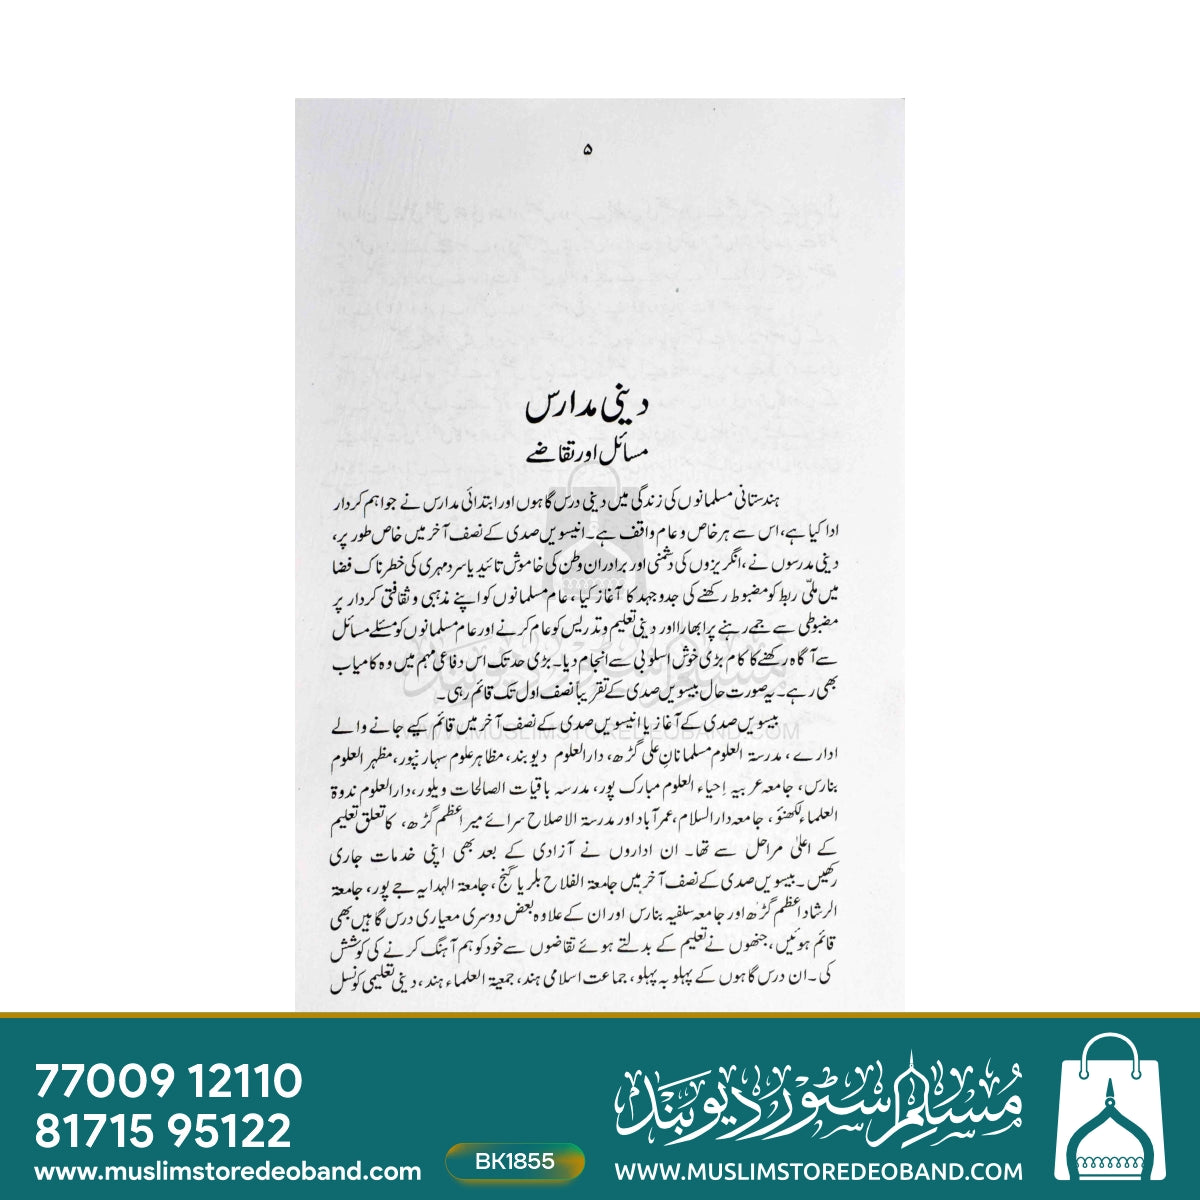 ۵
دینی مدارس
مسائل اور تقاضے
ہندستانی مسلمانوں کی زندگی میں دینی درس گاہوں اور ابتدائی مدارس نے جو اہم کردار
ادا کیا ہے، اس سے ہر خاص و عام واقف ہے۔ انیسویں صدی کے نصف آخر میں خاص طور پر،
دینی مدرسوں نے، انگریزوں کی دشمنی اور برادران وطن کی خاموش تائید یا سرد مہری کی خطرناک فضا
میں ملّی ربط کو مضبوط رکھنے کی جدوجہد کا آغاز کیا، عام مسلمانوں کو اپنے مذہبی و ثقافتی کردار پر
مضبوطی سے جمے رہنے پر ابھارا اور دینی تعلیم و تدریس کو عام کرنے اور عام مسلمانوں کو مسئلے مسائل
سے آگاہ رکھنے کا کام بڑی خوش اسلوبی سے انجام دیا۔ بڑی حد تک اس دفاعی مہم میں وہ کامیاب
بھی رہے۔ یہ صورت حال بیسویں صدی کے تقریباً نصف اول تک قائم رہی۔
بیسویں صدی کے آغاز یا انیسویں صدی کے نصف آخر میں قائم کیے جانے والے
ادارے، مدرسۃ العلوم مسلمانانِ علی گڑھ، دارالعلوم دیوبند، مظاہر علوم سہارنپور، مظہر العلوم
بنارس، جامعہ عربیہ احیاء العلوم مبارک پور، مدرسہ باقیات الصالحات ویلور، دارالعلوم ندوۃ
العلماء لکھنؤ، جامعہ دارالسلام، عمر آباد اور مدرسۃ الاصلاح سرائے میر اعظم گڑھ، کا تعلق تعلیم
کے اعلیٰ مراحل سے تھا۔ ان اداروں نے آزادی کے بعد بھی اپنی خدمات جاری
رکھیں۔ بیسویں صدی کے نصف آخر میں جامعۃ الفلاح بلریا گنج، جامعۃ الہدایہ جے پور، جامعۃ
الرشاد اعظم گڑھ اور جامعہ سلفیہ بنارس اور ان کے علاوہ بعض دوسری معیاری درس گاہیں بھی
قائم ہوئیں، جنھوں نے تعلیم کے بدلتے ہوئے تقاضوں سے خود کو ہم آہنگ کرنے کی کوشش
کی۔ ان درس گاہوں کے پہلو بہ پہلو، جماعت اسلامی ہند، جمعیۃ العلماء ہند، دینی تعلیمی کونسل
مسلم سٹور دیوبند
WWW.MUSLIMSTOREDEOBAND.COM
77009 12110
81715 95122
www.muslimstoredeoband.com
BK1855
مُسلِم سٹور دیوبَند
WWW.MUSLIMSTOREDEOBAND.COM